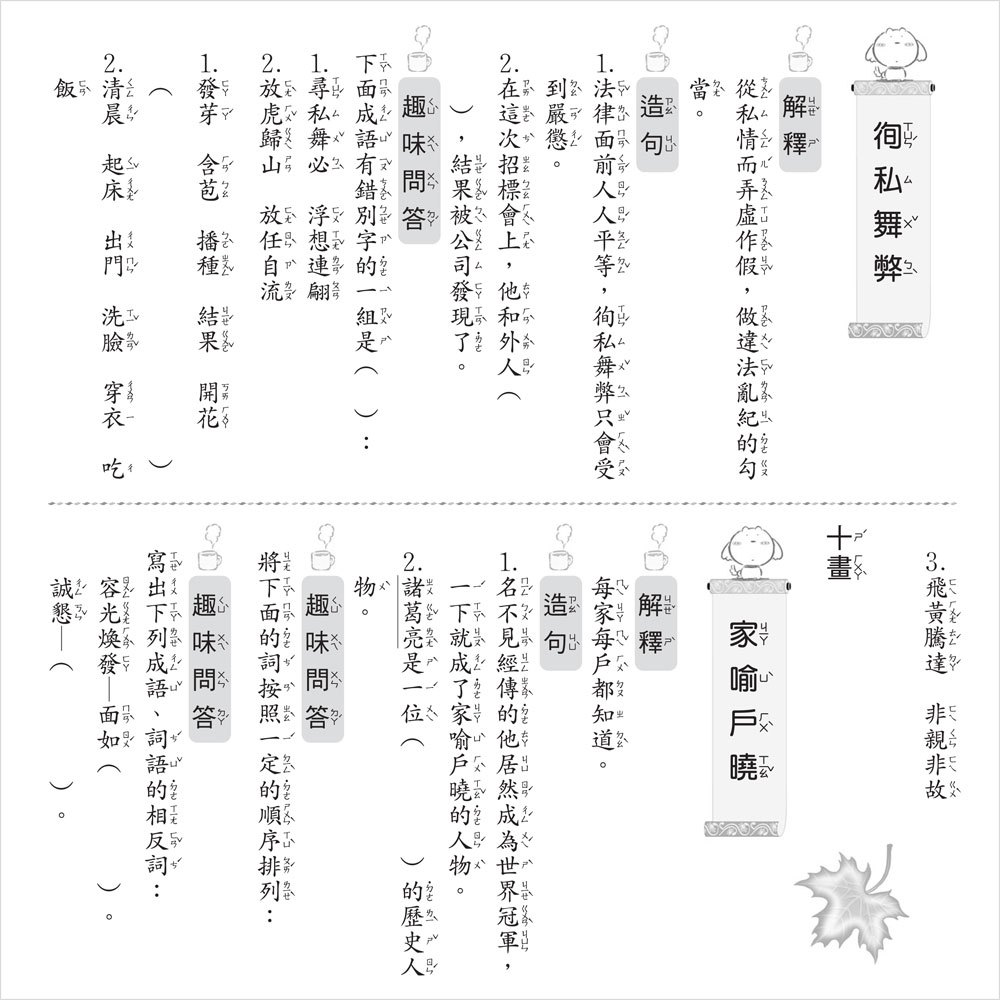 徇私舞弊
解釋
從私情而弄虛作假，做違法亂紀的勾
當。
造句
1.法律面前人人平等，徇私舞弊只會受
到嚴懲。
2.在這次招標會上，他和外人（
），結果被公司發現了。
趣味問答
下面成語有錯別字的一組是（　）：
1.尋私舞必　浮想連翩
2.放虎歸山　放任自流
1.發芽　含苞　播種　結果　開花
（　　　）
2.清晨　起床　出門　洗臉　穿衣　吃
飯
3.飛黃騰達　非親非故
十畫
家喻戶曉
解釋
每家每戶都知道。
造句
1.名不見經傳的他居然成為世界冠軍，
一下就成了家喻戶曉的人物。
2.諸葛亮是一位（　　　）的歷史人
物。
趣味問答
將下面的詞按照一定的順序排列：
趣味問答
寫出下列成語、詞語的相反詞：
容光煥發—面如（　　　）。
誠懇—（　　　）。